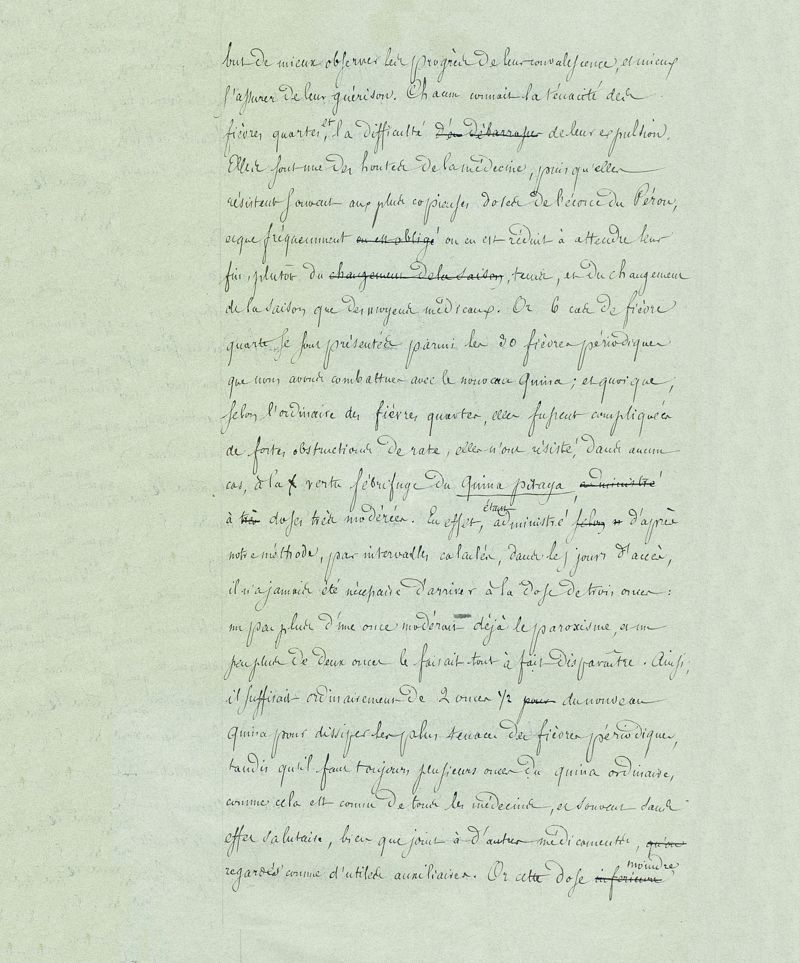 but de mieux observer les progrès de leur convalescence, et mieux
s'assurer de leur guérison. Chacun connait la ténacité des
fièvres quartes, et la difficulté d'en débarrasser de leur expulsion.
Elles sont une des hontes de la médecine, puisqu'elles
résistent souvent aux plus copieuses doses de l'écorce du Pérou,
et que fréquemment on est obligé on en est réduit à attendre leur
fin, plutôt du changement de la saison, tems, et du changement
de la saison que des moyens médicaux. Or 6 cas de fièvre
quarte se sont présentés parmi les 30 fièvres périodiques
que nous avons combattues avec le nouveau Quina; et quoique,
selon l'ordinaire des fièvres quartes, elles fussent compliquées
de fortes obstructions de rate, elles n'ont résisté, dans aucun
cas, à la vertu fébrifuge du Quina pitaya, administré
à très doses très modérées. En effet, étant administré selon n d'après
notre méthode, par intervalles calculés, dans les jours d'accès,
il n'a jamais été nécessaire d'arriver à la dose de trois onces:
un peu plus d'une once modérait déjà le paroxisme, et un
peu plus de deux onces le faisait tout à fait disparaître. Ainsi,
il suffisait ordinairement de 2 onces 1/2 pour du nouveau
Quina pour dissiper les plus tenaces des fièvres périodiques,
tandis qu'il faut toujours plusieurs onces du quina ordinaire,
comme cela est connu de tous les médecins, et souvent sans
effet salutaire, bien que joint à d'autres médicaments, qu'on
regardés comme d'utiles auxiliaires. Or cette dose inférieure moindre